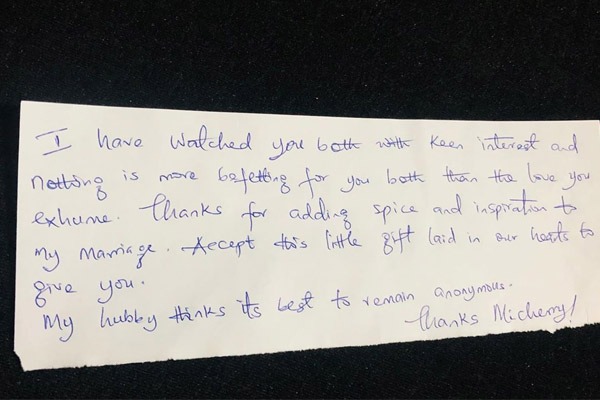 I have watched you both with keen interest and
nothing is more befetting for you both than the love you
exhume. Thanks for adding spice and inspiration to
my marriage. Accept this little gift laid in our hearts to
give you.
My hubby thinks its best to remain anonymous.
Thanks Micherry!